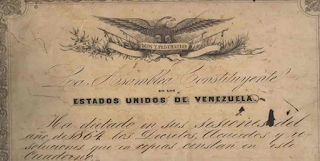 DIOS Y FEDERACION
La Asamblea Constituyente
DE LOS
ESTADOS UNIDOS DE VENEZUELA.
Ha dictado en sus sesiones del
año de 1864 los Decretos, Acuerdos y re-
soluciones que en copias constan en este
Cuaderno